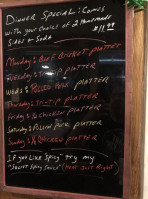 Dinner Special: Comes
with your choice of 2 Homemade
Sides & Soda $11.99
Monday: Beef Brisket platter
Tuesday: Tri-tip platter
Weds: Pulled Pork platter
Thursday: Tri-tip platter
Friday: 1/2 Chicken platter
Saturday: Pulled Pork platter
Sunday: 1/2 Chicken platter
If you like Spicy try my
"Secret Spicy Sauce"